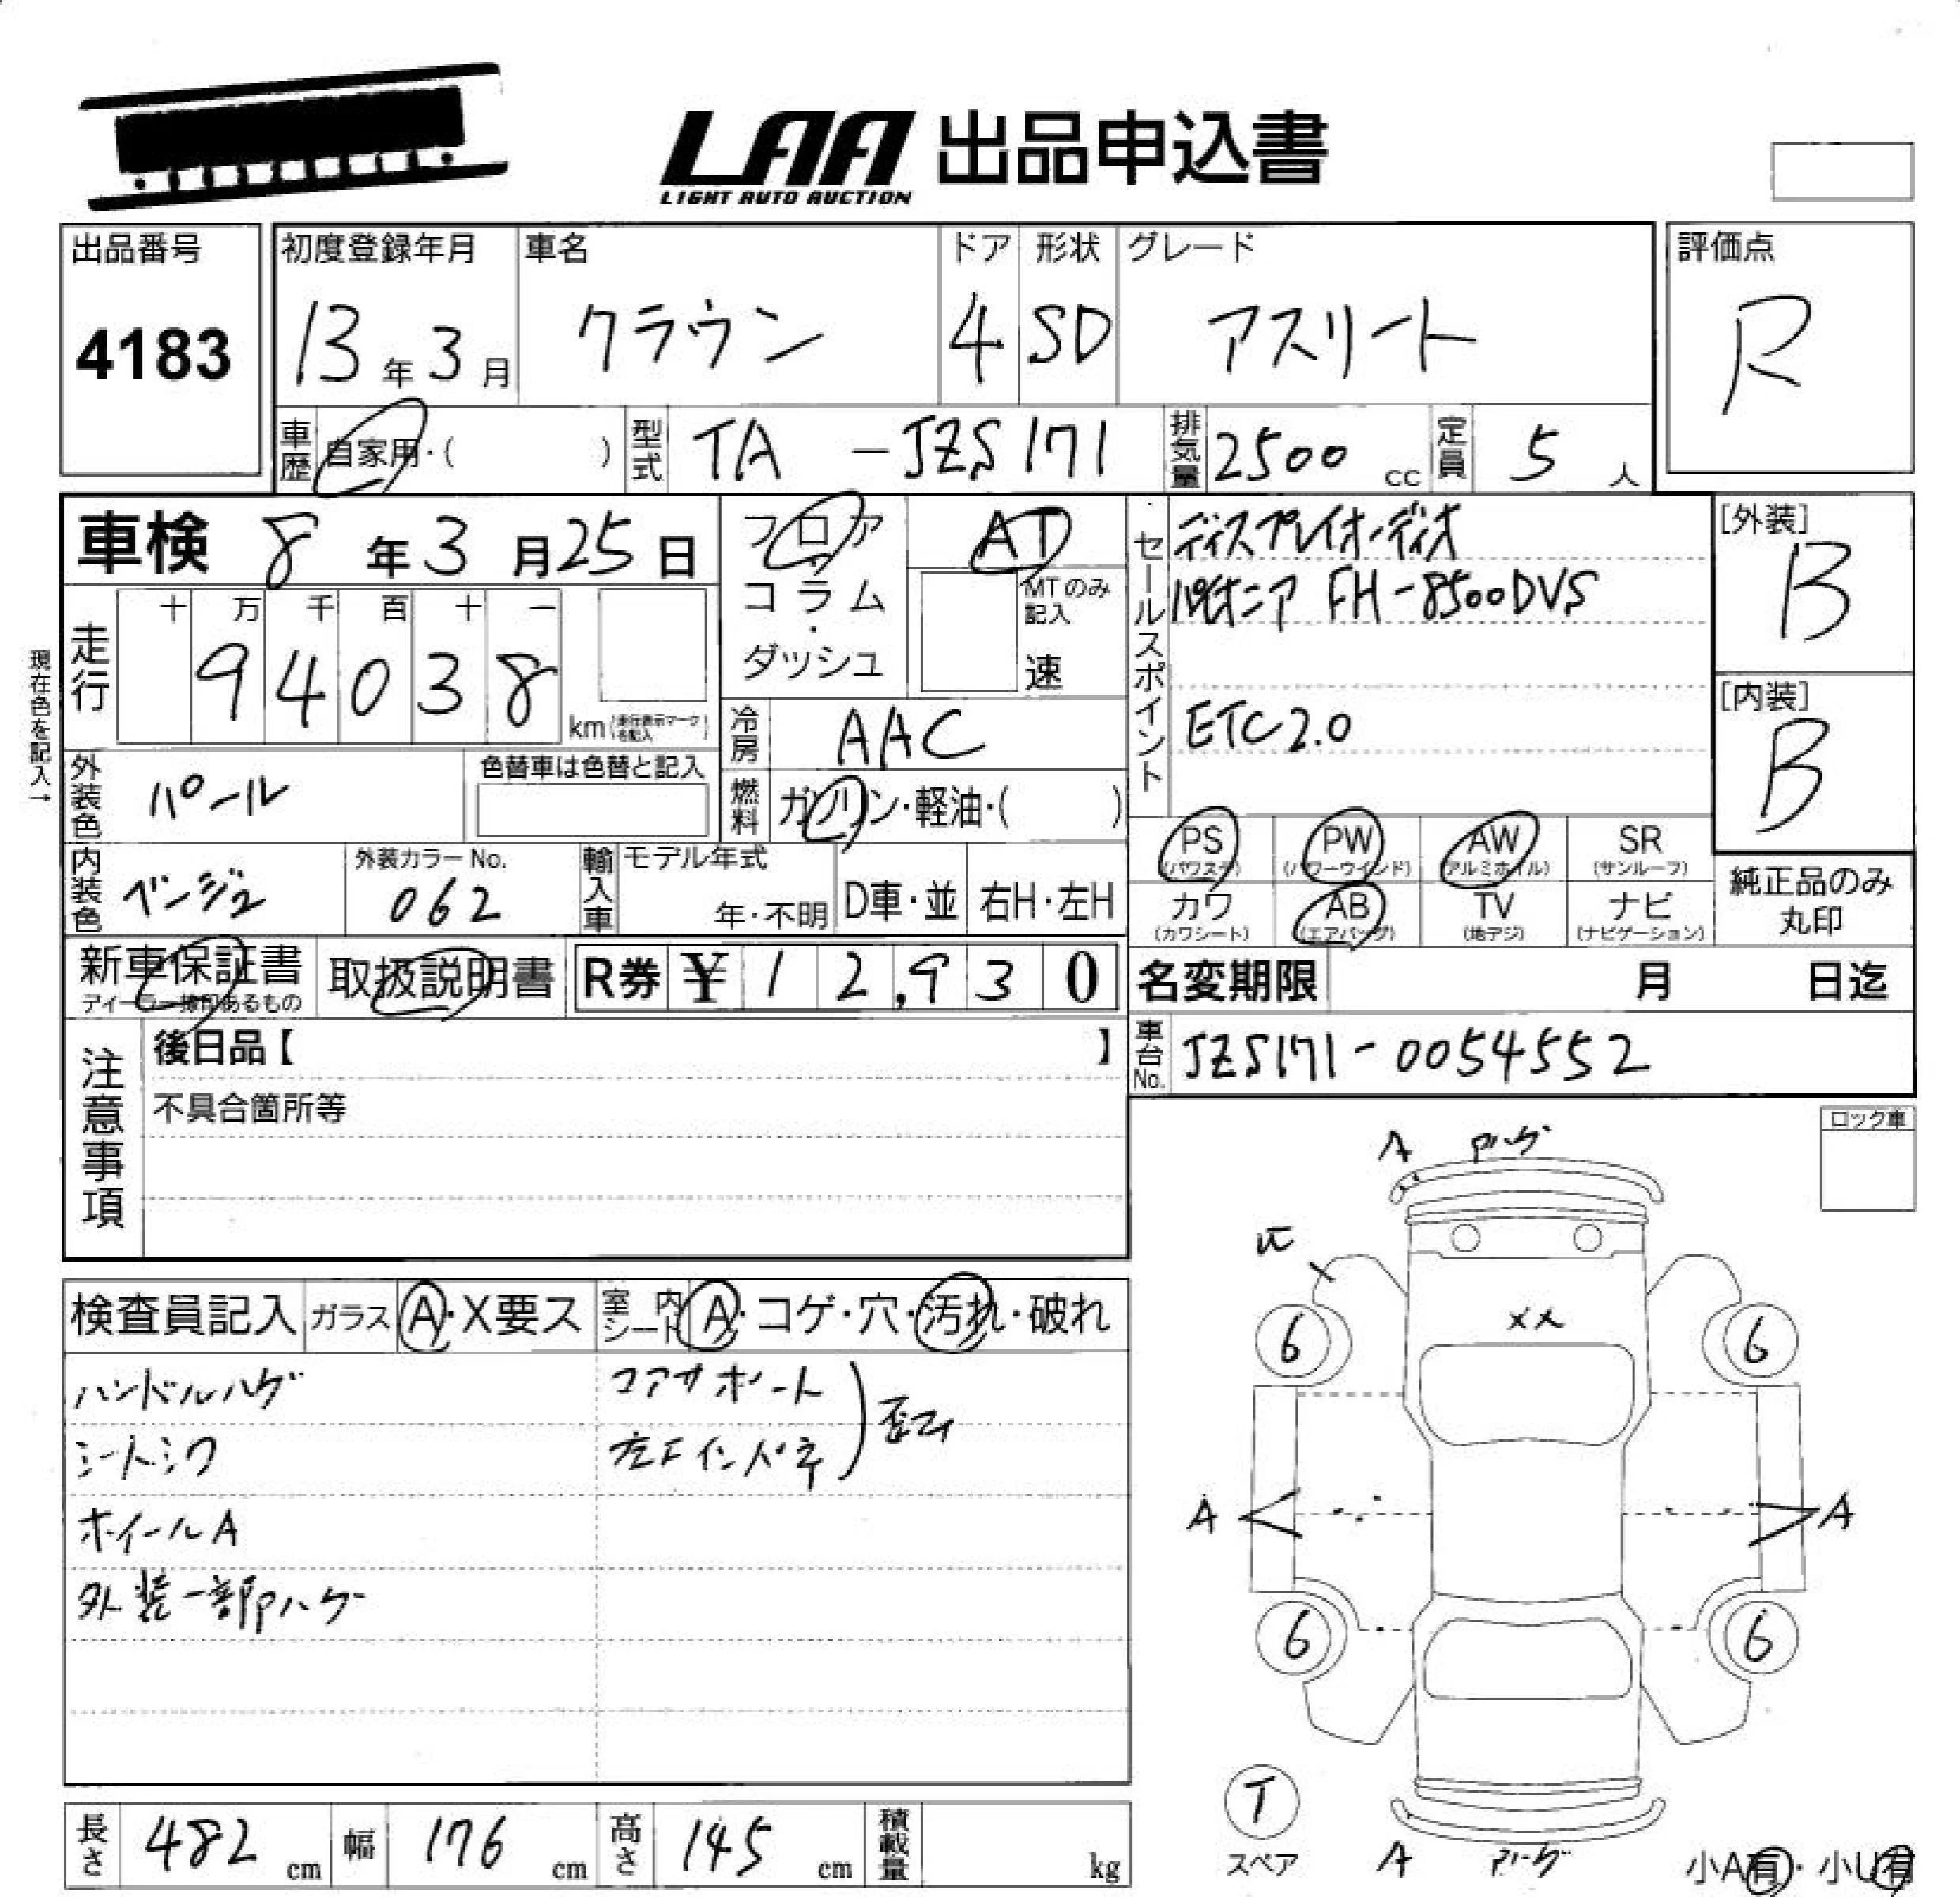 LAA 出品申込書
LIGHT AUTO AUCTION
出品番号 初度登録年月 車名 ドア 形状 グレード 評価点
4183 13年3月 クラウン 4 SD アスリート R
車歴 自家用・( ) 型式 TA -JZS171 排気量 2500 cc 定員 5 人
車検 8年3月25日 フロア AT セールスポイント ディスプレイオーディオ [外装]
コラム・ MTのみ記入 パイオニア FH-8500DVS B
走行 十 万 千 百 十 一
94038 km (走行表示マークを記入) ダッシュ 速
現在色を記入→
冷房 AAC ETC2.0 [内装]
B
外装色 パール 色替車は色替と記入 燃料 ガソリン・軽油・( )
PS (パワステ) PW (パワーウインド) AW (アルミホイル) SR (サンルーフ)
内装色 ベージュ 外装カラーNo. 062 輸入車 モデル年式 年・不明 D車・並 右H・左H
カワ (カワシート) AB (エアバッグ) TV (地デジ) ナビ (ナビゲーション) 純正品のみ丸印
新車保証書 取扱説明書 R券 ¥12,930 名変期限 月 日迄
ディーラー捺印あるもの
注意事項 後日品【 】 車台No. JZS171-0054552
不具合箇所等
ロック車
A Pハゲ
検査員記入 ガラス A・X要ス 室内シート A・コゲ・穴・汚れ・破れ
XX
6 6
ハンドルハゲ コアサポート
シートシワ 左Fインパネ 歪ミ
ホイールA A A
外装一部Pハゲ
6 6
T
スペア
A Pハゲ
小A有・小U有
長さ 482 cm 幅 176 cm 高さ 145 cm 積載量 kg